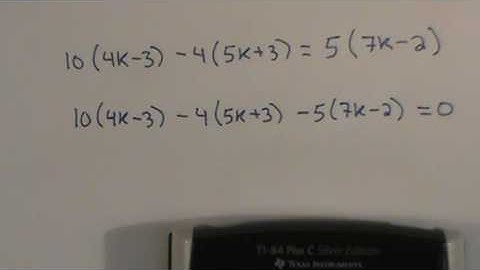 10(4K-3) -4(5K+3) = 5(7K-2)
10(4K-3) -4(5K+3) -5(7K-2) = 0
TI-84 Plus C Silver Edition
TEXAS INSTRUMENTS